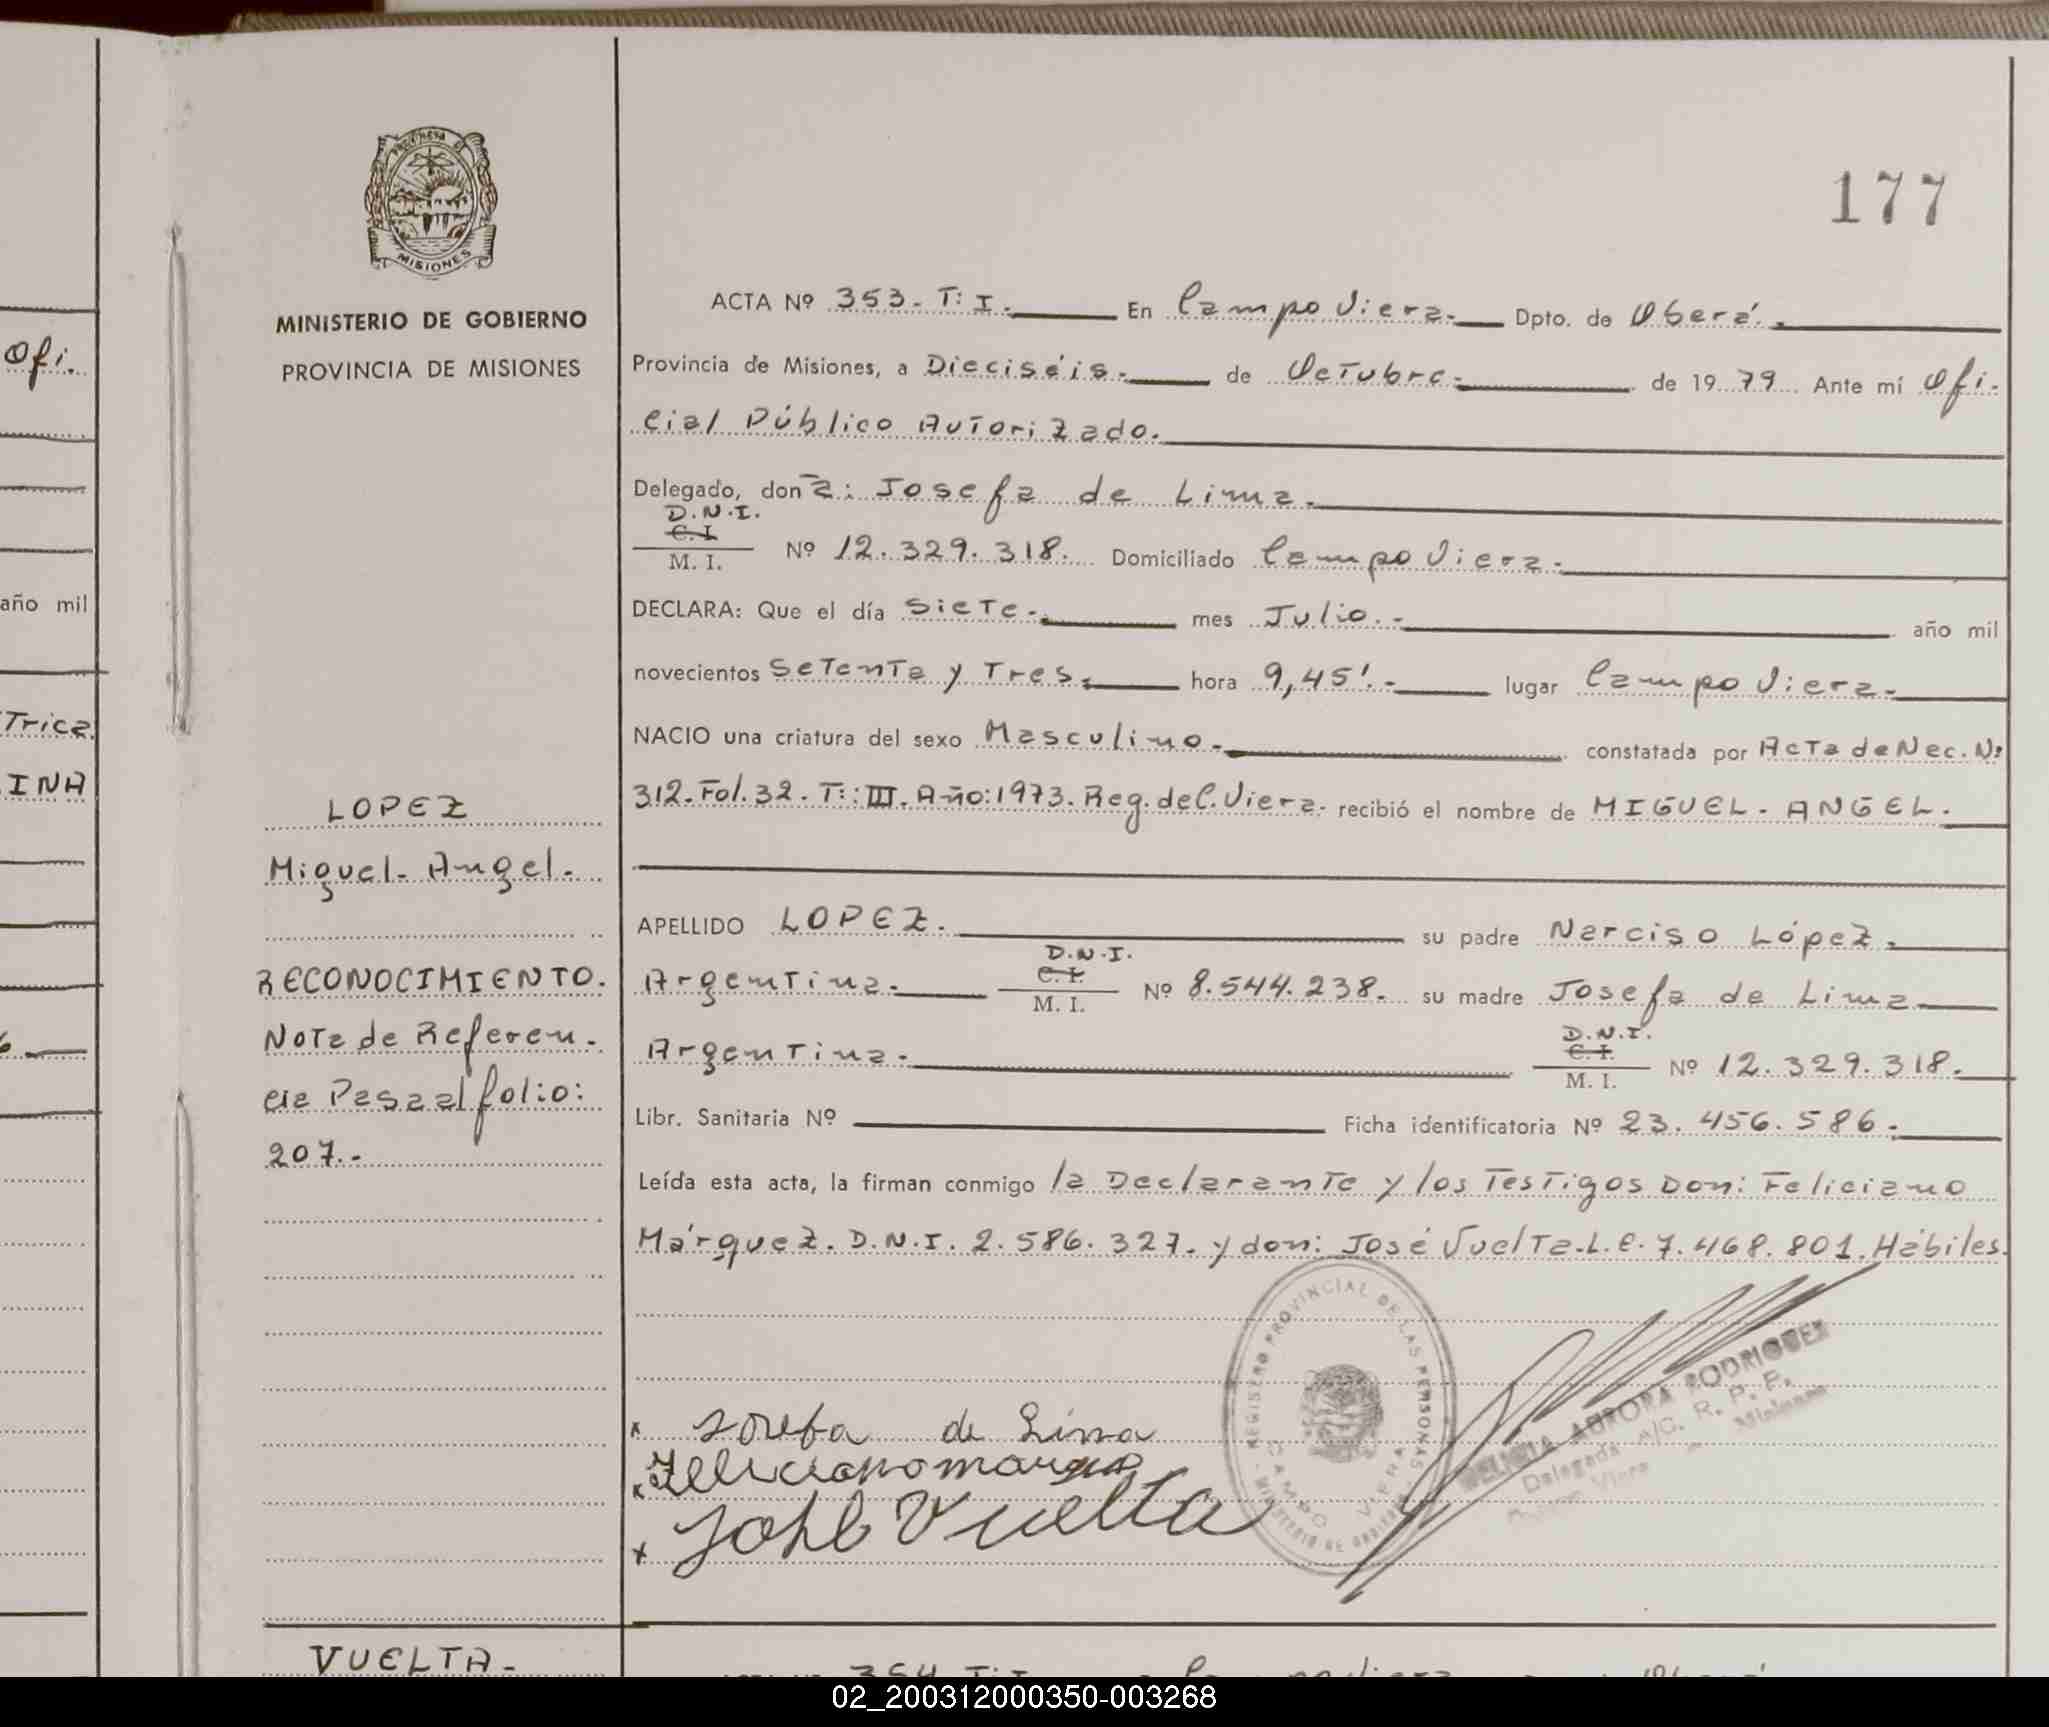 177
PROVINCIA DE
MISIONES
MINISTERIO DE GOBIERNO
PROVINCIA DE MISIONES
ACTA Nº 353. T: I. En Campo Viera. Dpto. de Oberá.
Provincia de Misiones, a Dieciséis. de Octubre. de 1979 Ante mí Ofi.
cial Público Autorizado.
Delegado, don a: Josefa de Lima.
D.N.I.
C. I.
M. I. Nº 12.329.318. Domiciliado Campo Viera.
DECLARA: Que el día siete. mes Julio. año mil
novecientos Setenta y Tres. hora 9,45'. lugar Campo Viera.
NACIO una criatura del sexo Masculino. constatada por Acta de Nec. Nº
312. Fol. 32. T: III. Año: 1973. Reg. de C. Viera. recibió el nombre de MIGUEL. ANGEL.
APELLIDO LOPEZ. su padre Narciso López.
D.N.I.
C. I.
Argentina. M. I. Nº 8.544.238. su madre Josefa de Lima
D.N.I.
C. I.
Argentina. M. I. Nº 12.329.318.
Libr. Sanitaria Nº Ficha identificatoria Nº 23.456.586.
Leída esta acta, la firman conmigo la Declarante y los Testigos Don: Feliciano
Márquez. D.N.I. 2.586.327. y don: José Vuelta. L.E. 7.468.801. Hábiles.
LOPEZ
Miguel. Angel.
RECONOCIMIENTO.
Nota de Referen.
cia Pasa al folio:
207.-
Josefa de Lima
Feliciano
José Vuelta
REGISTRO PROVINCIAL DE LAS PERSONAS
CAMPO VIERA
MINISTERIO DE GOBIERNO
AURORA RODRIGUEZ
Delegada A/C. R. P. P.
Campo Viera - Misiones
VUELTA.
354 T: I
Ofi.
año mil
Trica
INA
02_200312000350-003268